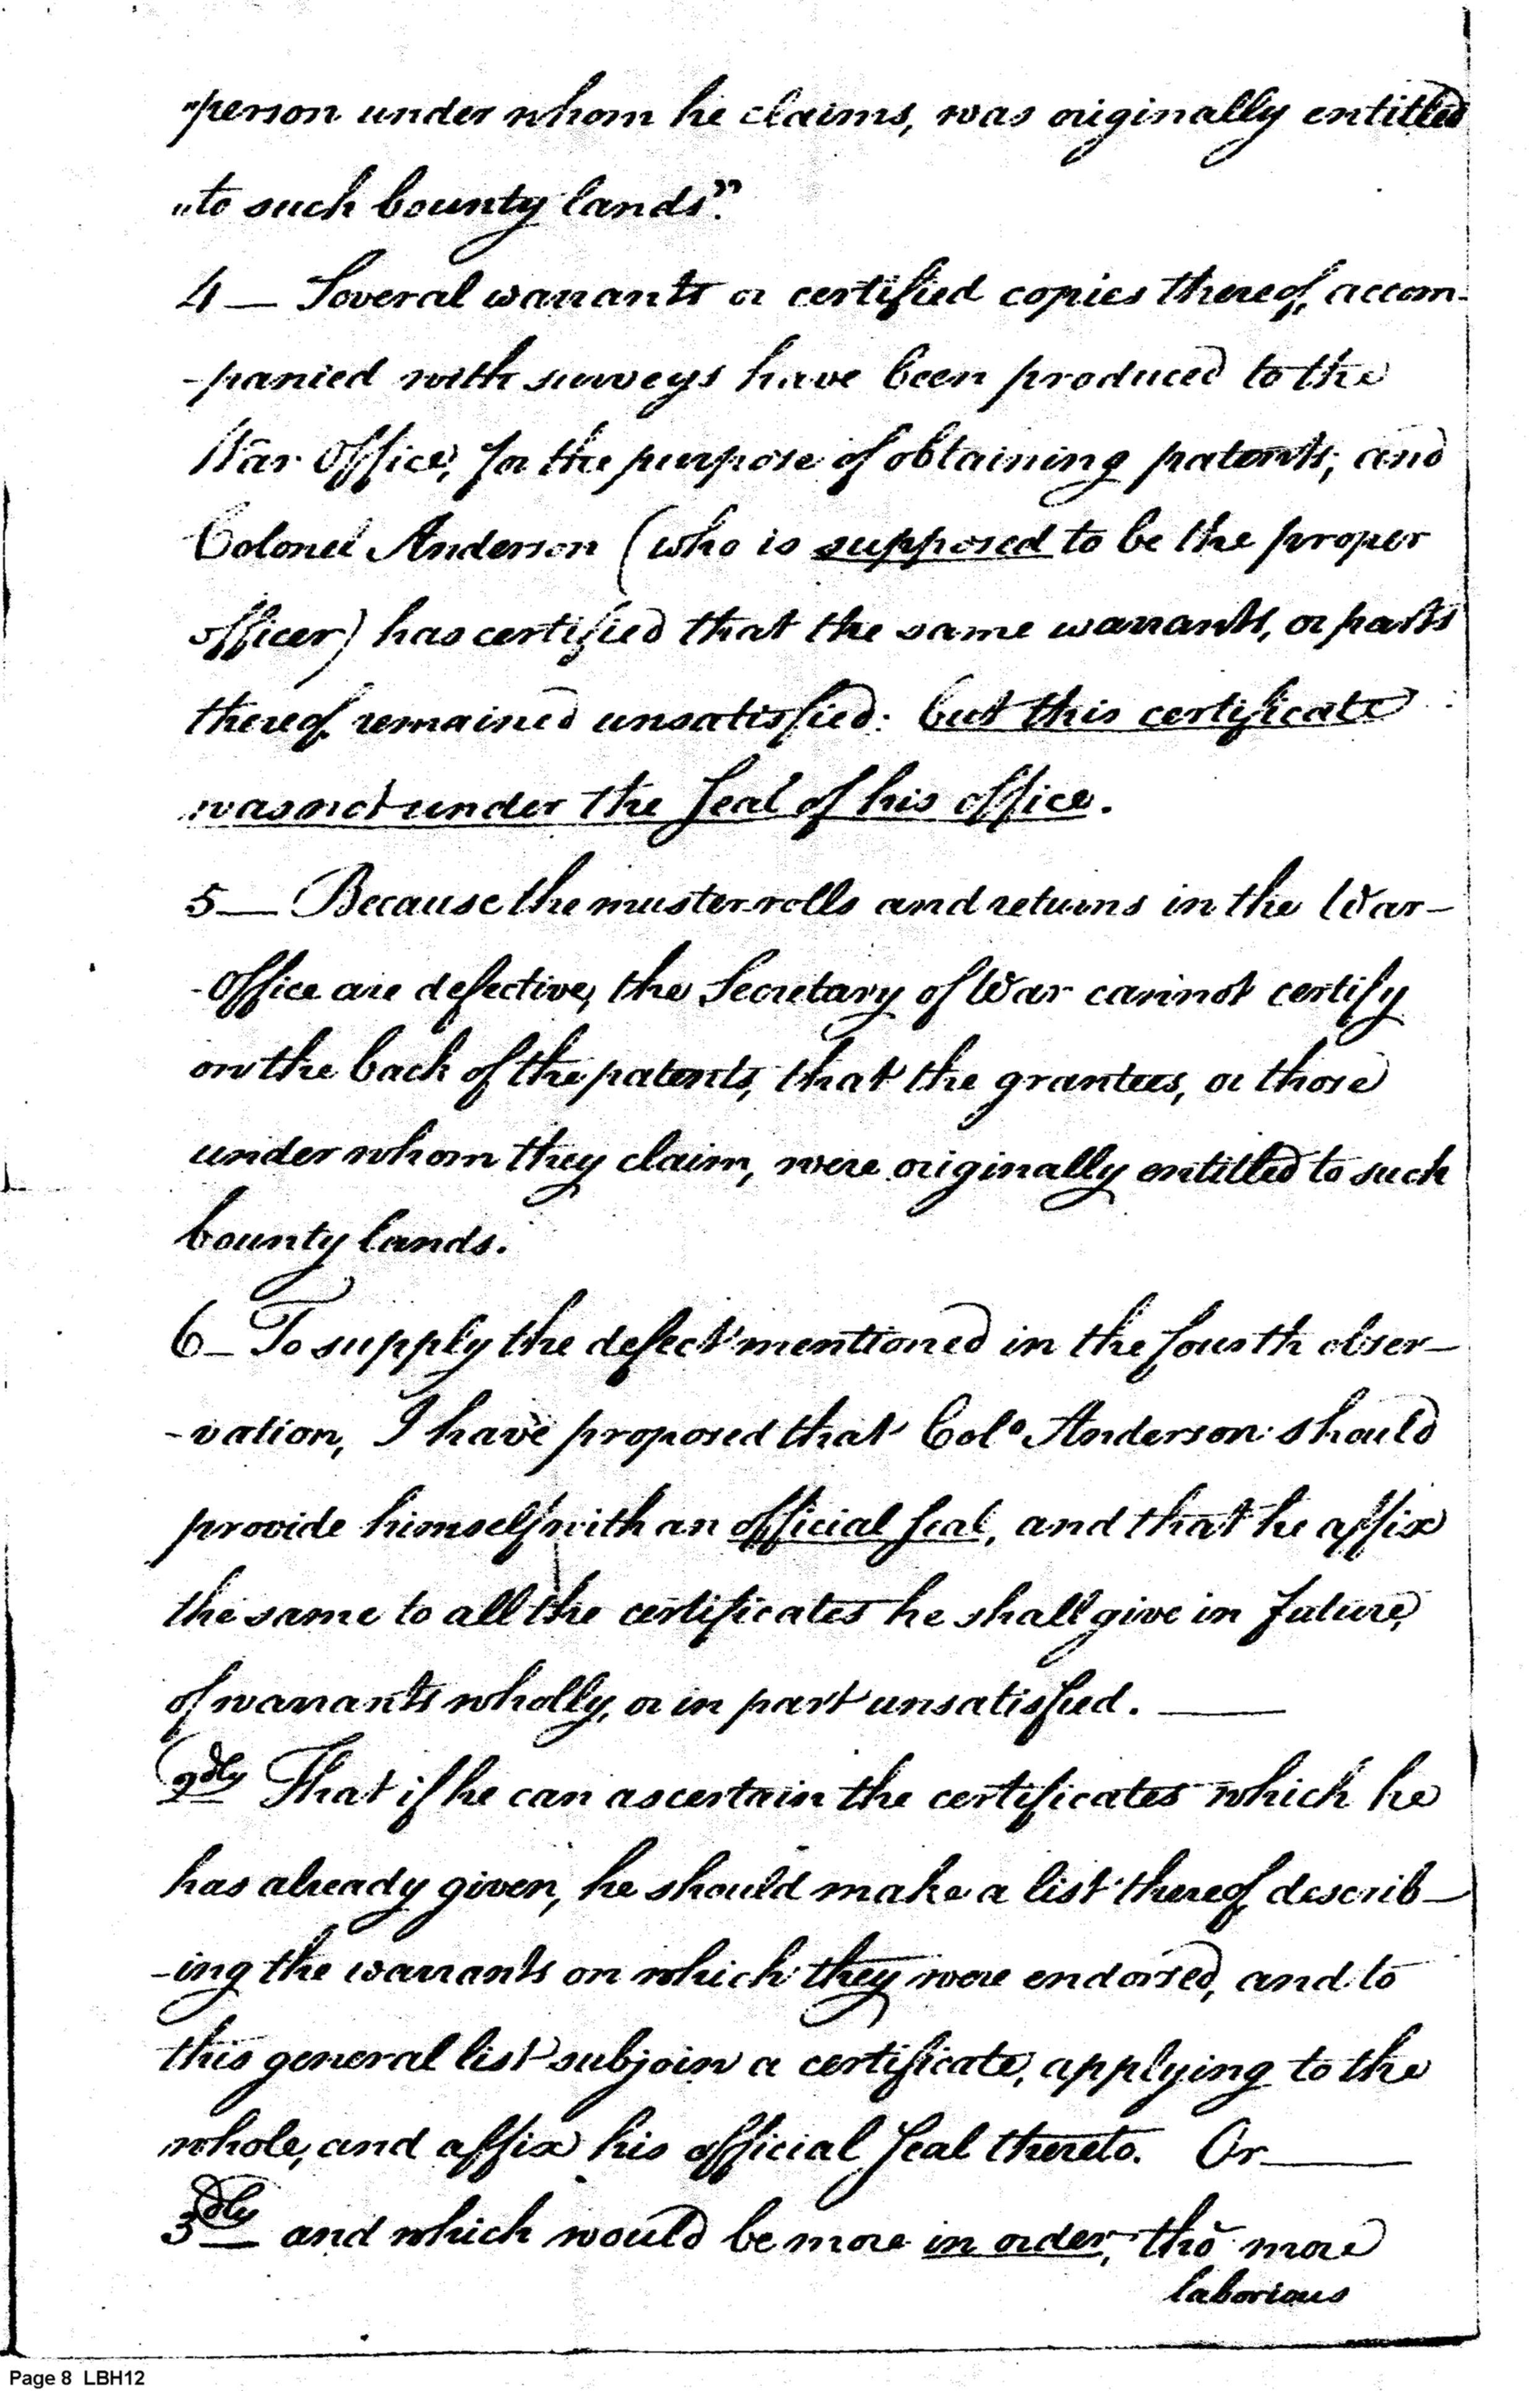 "person under whom he claims, was originally entitled
"to such bounty lands".
4 — Several warrants or certified copies thereof, accom-
-panied with surveys have been produced to the
War Office, for the purpose of obtaining patents; and
Colonel Anderson (who is supposed to be the proper
officer) has certified that the same warrants, or parts
thereof remained unsatisfied: but this certificate
was not under the Seal of his office.
5 — Because the muster-rolls and returns in the War-
-Office are defective, the Secretary of War cannot certify
on the back of the patents, that the grantees, or those
under whom they claim, were originally entitled to such
bounty lands.
6 — To supply the defect mentioned in the fourth obser-
-vation, I have proposed that Colo Anderson should
provide himself with an official Seal, and that he affix
the same to all the certificates he shall give in future,
of warrants wholly, or in part unsatisfied. —
2dly That if he can ascertain the certificates which he
has already given, he should make a list thereof describ-
-ing the warrants on which they were endorsed, and to
this general list subjoin a certificate, applying to the
whole, and affix his official Seal thereto. Or —
3dly and which would be more in order, tho' more
laborious
Page 8 LBH12